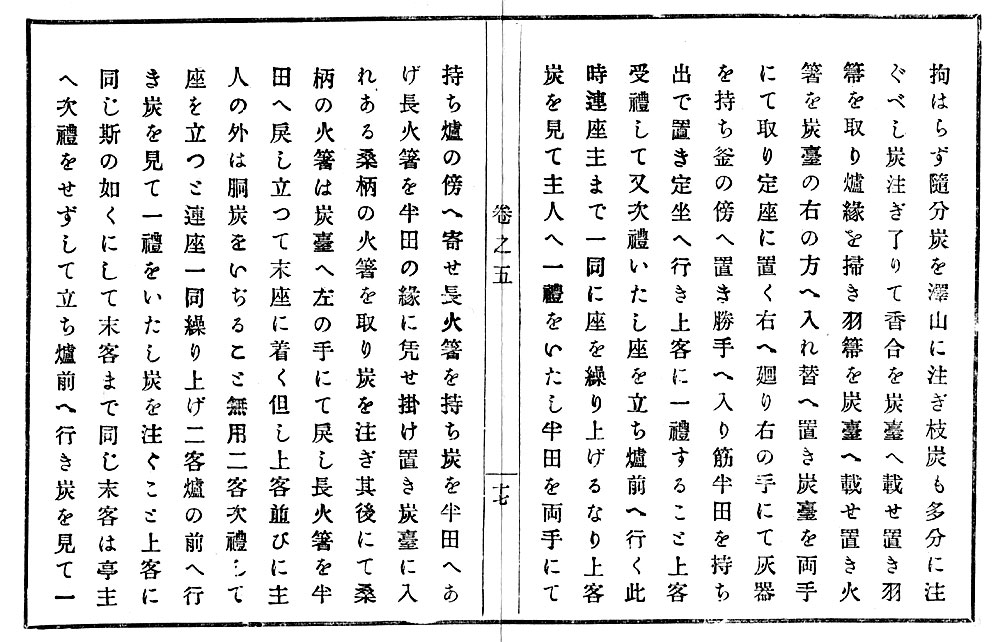 拘はらず隨分炭を澤山に注ぎ枝炭も多分に注
ぐべし炭注ぎ了りて香合を炭臺へ載せ置き羽
箒を取り爐緣を掃き羽箒を炭臺へ載せ置き火
箸を炭臺の右の方へ入れ替へ置き炭臺を両手
にて取り定座に置く右へ廻り右の手にて灰器
を持ち釜の傍へ置き勝手へ入り筋半田を持ち
出で置き定坐へ行き上客に一禮すること上客
受禮して又次禮いたし座を立ち爐前へ行く此
時連座主まで一同に座を繰り上げるなり上客
炭を見て主人へ一禮をいたし半田を両手にて
卷之五
十七
持ち爐の傍へ寄せ長火箸を持ち炭を半田へあ
げ長火箸を半田の緣に凭せ掛け置き炭臺に入
れある桑柄の火箸を取り炭を注ぎ其後にて桑
柄の火箸は炭臺へ左の手にて戻し長火箸を半
田へ戻し立つて末座に着く但し上客並びに主
人の外は胴炭をいぢること無用二客次禮して
座を立つと連座一同繰り上げ二客爐の前へ行
き炭を見て一禮をいたし炭を注ぐこと上客に
同じ斯の如くにして末客まで同じ末客は亭主
へ次禮をせずして立ち爐前へ行き炭を見て一